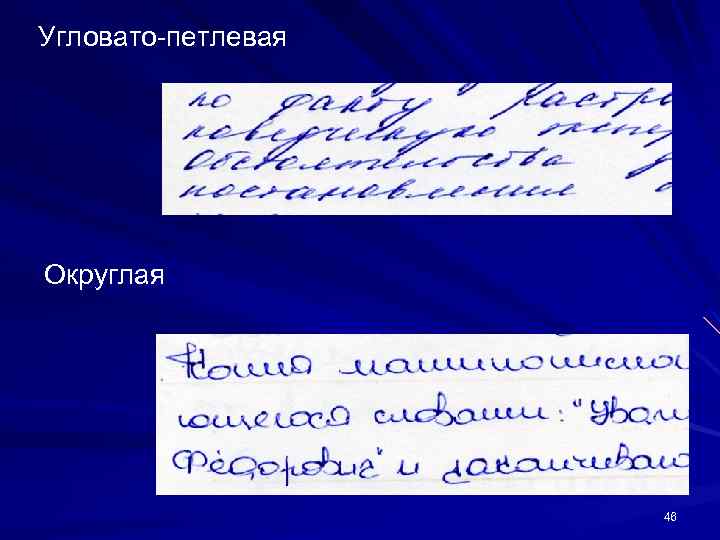 Угловато-петлевая
по факту
новедческую экспер
Обстоятельства
постановления
Округлая
Копия машинописно
ющегося словами: "Ува
Фёдорович" и заканчиваю
46